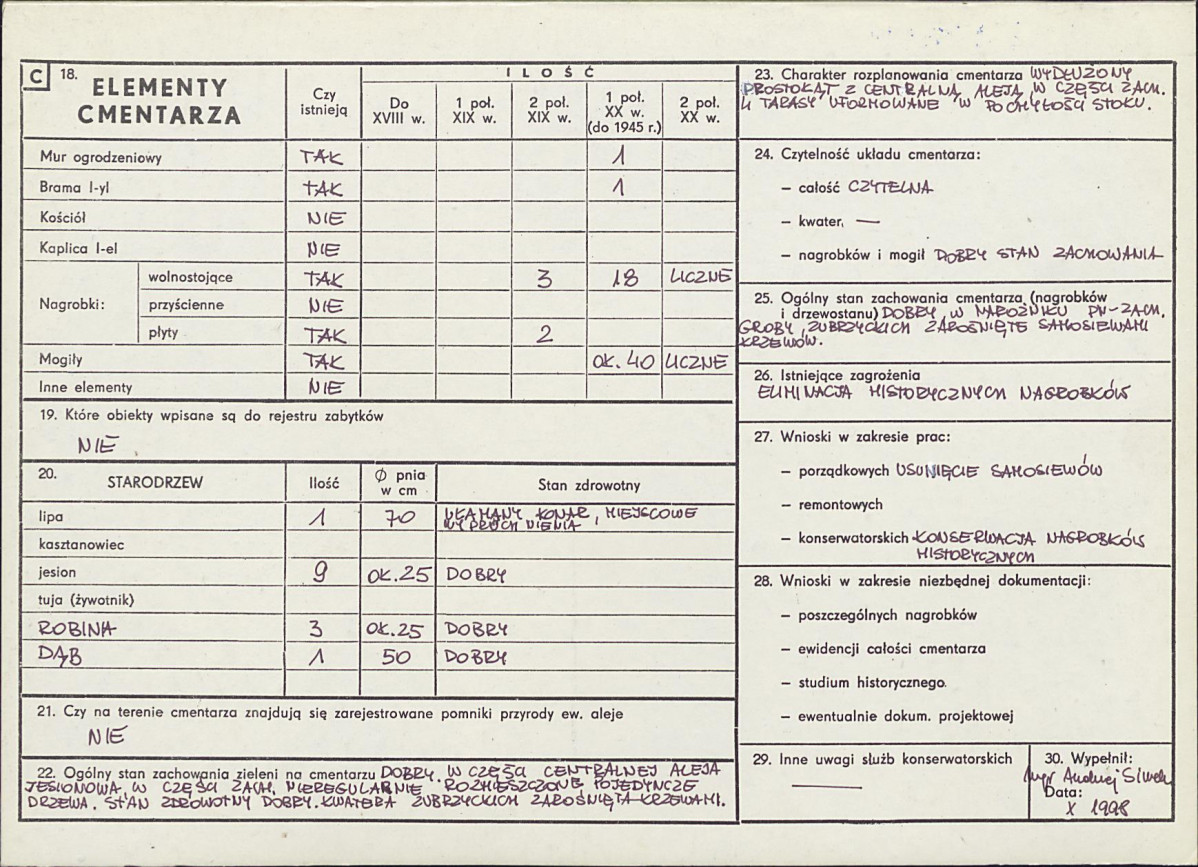 C 18. ELEMENTY CMENTARZA
Czy istnieją
ILOŚĆ
Do XVIII w.
1 poł. XIX w.
2 poł. XIX w.
1 poł. XX w. (do 1945 r.)
2 poł. XX w.
Mur ogrodzeniowy TAK 1
Brama I-yl TAK 1
Kościół NIE
Kaplica I-el NIE
Nagrobki:
wolnostojące TAK 3 18 LICZNE
przyścienne NIE
płyty TAK 2
Mogiły TAK OK. 40 LICZNE
Inne elementy NIE
19. Które obiekty wpisane są do rejestru zabytków
NIE
20. STARODRZEW Ilość Ø pnia w cm Stan zdrowotny
lipa 1 70 UŁAMANY KONAR, MIEJSCOWE
WYPRÓCHNIENIA
kasztanowiec
jesion 9 OK. 25 DOBRY
tuja (żywotnik)
ROBINA 3 OK. 25 DOBRY
DĄB 1 50 DOBRY
21. Czy na terenie cmentarza znajdują się zarejestrowane pomniki przyrody ew. aleje
NIE
22. Ogólny stan zachowania zieleni na cmentarzu DOBRY. W CZĘŚCI CENTRALNEJ ALEJA
JESIONOWA. W CZĘŚCI ZACH. NIEREGULARNIE ROZMIESZCZONE POJEDYNCZE
DRZEWA. STAN ZDROWOTNY DOBRY. KWATERA ZUBRZYCKICH ZAROŚNIĘTA KRZEWAMI.
23. Charakter rozplanowania cmentarza WYDŁUŻONY
PROSTOKĄT Z CENTRALNĄ ALEJĄ W CZĘŚCI ZACH.
4 TARASY UFORMOWANE W POCHYŁOŚCI STOKU.
24. Czytelność układu cmentarza:
– całość CZYTELNA
– kwater, —
– nagrobków i mogił DOBRY STAN ZACHOWANIA
25. Ogólny stan zachowania cmentarza (nagrobków
i drzewostanu) DOBRY, W NAROŻNIKU PN-ZACH.
GROBY ZUBRZYCKICH ZAROŚNIĘTE SAMOSIEWAMI
KRZEWÓW.
26. Istniejące zagrożenia
ELIMINACJA HISTORYCZNYCH NAGROBKÓW
27. Wnioski w zakresie prac:
– porządkowych USUNIĘCIE SAMOSIEWÓW
– remontowych
– konserwatorskich KONSERWACJA NAGROBKÓW
HISTORYCZNYCH
28. Wnioski w zakresie niezbędnej dokumentacji:
– poszczególnych nagrobków
– ewidencji całości cmentarza
– studium historycznego.
– ewentualnie dokum. projektowej
29. Inne uwagi służb konserwatorskich
—
30. Wypełnił:
mgr Andrzej
Data:
X 1998